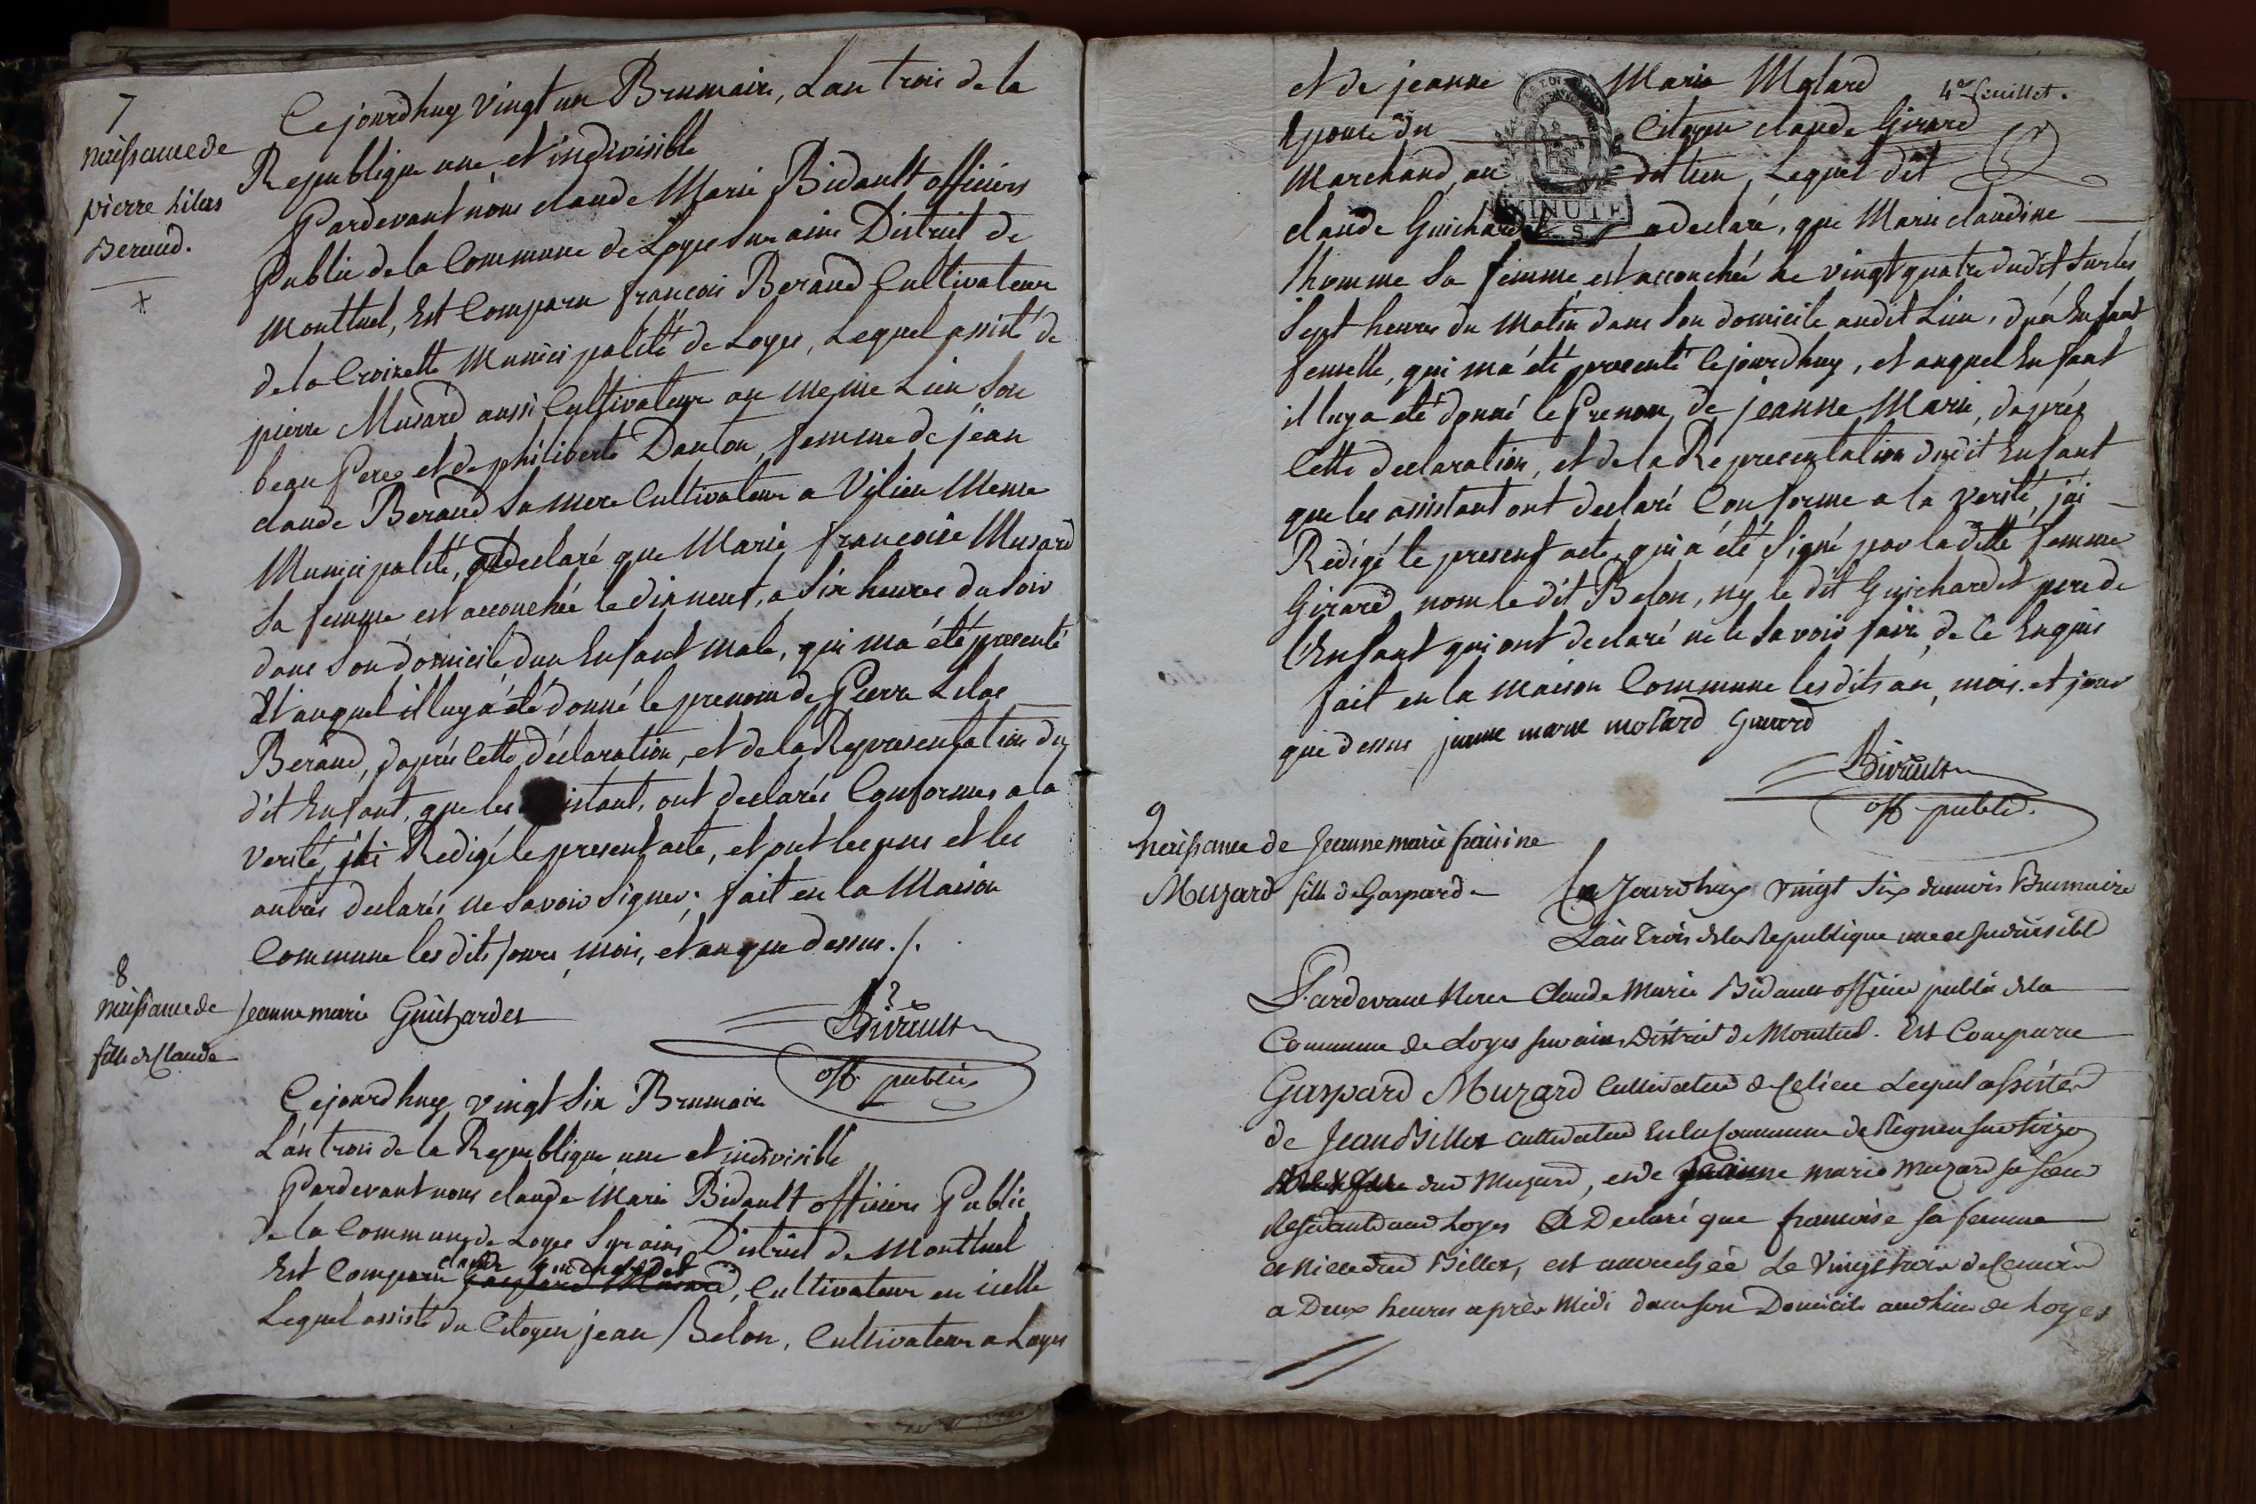 7
naissance de
pierre Lilas
Beraud.
Cejourdhuy vingt un Brumaire, Lan trois de la
Republique une et indivisible
Pardevant nous claude Marie Bidault officiers
Public de la Commune de Loyes Sur ains District de
Montluel, Est Comparu françois Beraud Cultivateur
de la Croizette Municipalité de Loyes, Lequel assisté de
pierre Musard aussi Cultivateur au meme Lieu Son
beau Pere, et de philiberte Danton, femme de jean
claude Beraud Sa mere Cultivateur a Vilieu Meme
Municipalité, a Declaré que Marie francoise Musard
Sa femme est accouchée le dixneuf, a Six heures du Soir
dans Son domicile, dun Enfant male, qui ma été presenté
Et auquel il luy a été donné le prenom de Pierre Lilas
Beraud, daprés Cette déclaration, et de la Representation du
dit Enfant, que les istant, ont declarés Conformes a la
verité, j'ai Redigé le present acte, et ont les uns et les
autres declarés ne Savoir Signer; fait en la Maison
Commune les dits jours, mois, et an que dessus ./.
Bidault
off. public
8
naissance de Jeanne marie Guichardet
fille de Claude
Cejourdhuy vingt Six Brumaire
L'an trois de la Republique une et indivisible
Pardevant nous claude Marie Bidault officiers Public
de la Commune de Loyes Sur ains District de Montluel
Est Comparu claude guichardet, Cultivateur en icelle
Lequel assisté du Citoyen jean Belon, Cultivateur a Loyes
4e feuillet.
et de jeanne Marie Molard
Epouse du Citoyen claude Girard
Marchand, au dit lieu, Lequel dit
MINUTE
claude Guichardet a declaré, que Marie claudine
lhomme Sa femme est accouchée le vingt quatre dudit Sur les
Sept heures du Matin dans Son domicile audit Lieu, d'un Enfant
femelle, qui ma été presenté Cejourdhuy, et auquel Enfant
il luy a été donné le Prenom de jeanne Marie, daprés
Cette declaration, et de la Representation dudit Enfant
que les assistant ont declaré Conforme a la verité, j'ai
Redigé le present acte, qui a été Signé par la ditte femme
Girard, non le dit Belon, ny le dit Guichardet pere de
l'Enfant qui ont declaré ne le Savoir faire de Ce Enquis
fait en la Maison Commune les dits an, mois, et jour
que dessus jeanne marie molard Girard
Bidault
off public.
9
naissance de Jeanne marie fraisine
Muzard fille de Gaspard
Ce Jourdhuy vingt Six du mois Brumaire
L'an Trois de la Republique une et Indivisible
Pardevant Nous Claude Marie Bidault officier public de la
Commune de Loyes sur ains District de Montluel. Est Comparu
Gaspard Muzard Cultivateur de Celieu Lequel assisté
de Jean Billet cultivateur En la Commune de
dud Muzard, et de Jeanne marie Muzard sa sœur
Residante aud Loyes A Declaré que francoise sa femme
et niece dud Billet, est accouchée Le Vingt trois de Ce mois
a Deux heures après Midi dans son Domicile aud lieu de Loyes